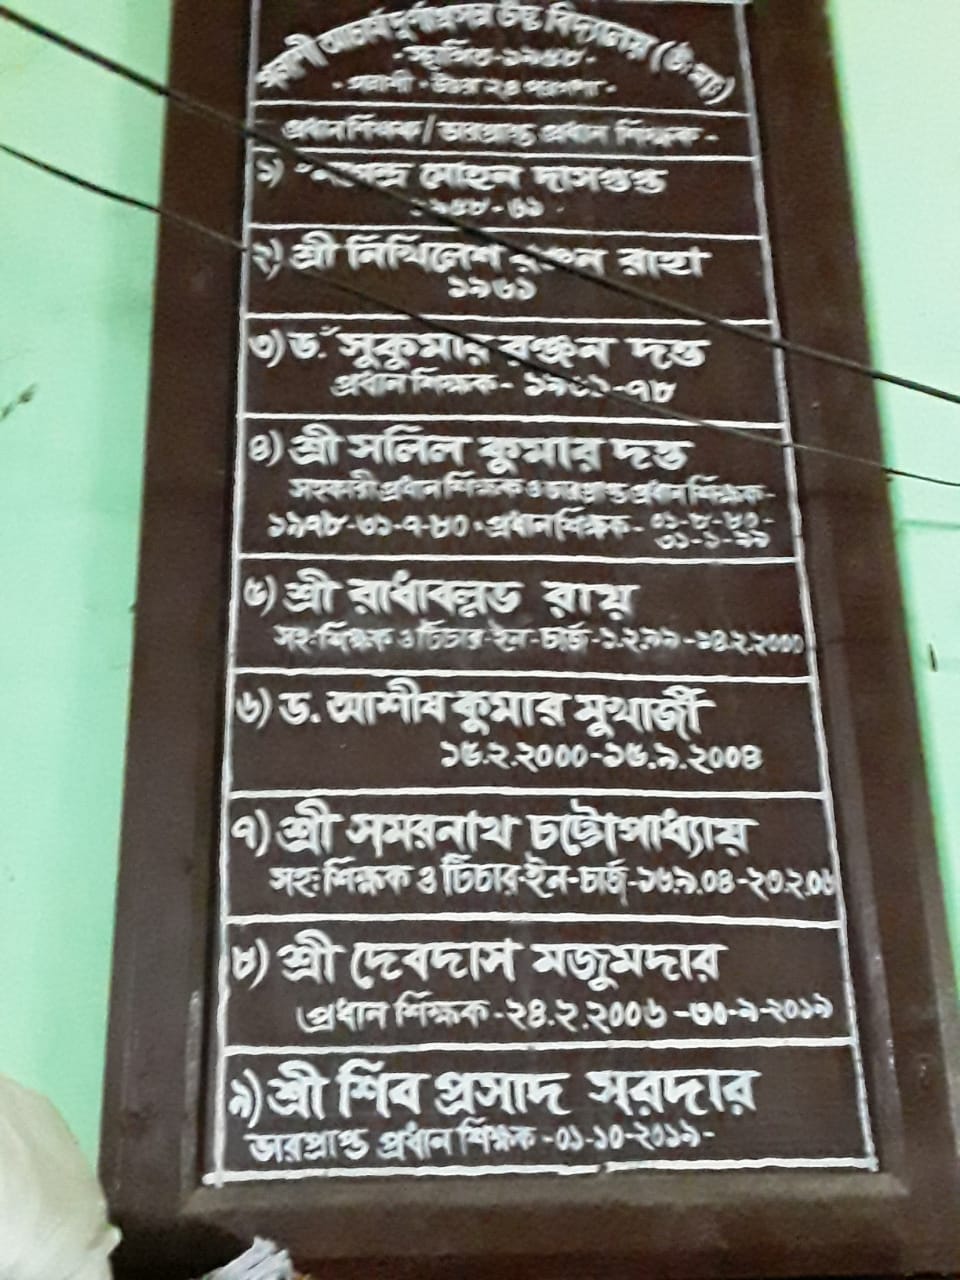 আচার্য দুর্গাপ্রসন্ন উচ্চ বিদ্যালয় (উঃ মাঃ)
- স্থাপিত - ১৯৫৮ -
উত্তর ২৪ পরগণা -
প্রধান শিক্ষক / ভারপ্রাপ্ত প্রধান শিক্ষক -
১) মোহন দাসগুপ্ত
১৯৫৮ - ৬১
২) শ্রী নিখিলেশ রঞ্জন রাহা
১৯৬১
৩) ড. সুকুমার রঞ্জন দত্ত
প্রধান শিক্ষক - ১৯৬১-৭৮
৪) শ্রী সলিল কুমার দত্ত
সহকারী প্রধান শিক্ষক ও ভারপ্রাপ্ত প্রধান শিক্ষক -
১৯৭৮-৩১-৭-৮০ • প্রধান শিক্ষক - ০১-৮-৮০ -
৩১-১-৯৯
৫) শ্রী রাধাবল্লভ রায়
সহ: শিক্ষক ও টিচার-ইন-চার্জ-১.২.৯৯-১৪.২.২০০০
৬) ড. আশীষ কুমার মুখার্জী
১৫.২.২০০০-১৫.৯.২০০৪
৭) শ্রী সমরনাথ চট্টোপাধ্যায়
সহ: শিক্ষক ও টিচার-ইন-চার্জ-১৬.৯.০৪-২৩.২.০৬
৮) শ্রী দেবদাস মজুমদার
প্রধান শিক্ষক - ২৪.২.২০০৬ - ৩০-৯-২০১৯
৯) শ্রী শিব প্রসাদ সরদার
ভারপ্রাপ্ত প্রধান শিক্ষক - ০১-১০-২০১৯ -